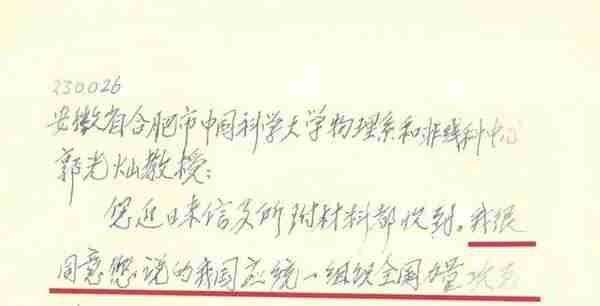 230026
安徽省合肥市中国科学大学物理系和非线科中心
郭光灿教授:
您近日来信及所附材料都收到。我很
同意您说的我国应统一组织全国力量攻克